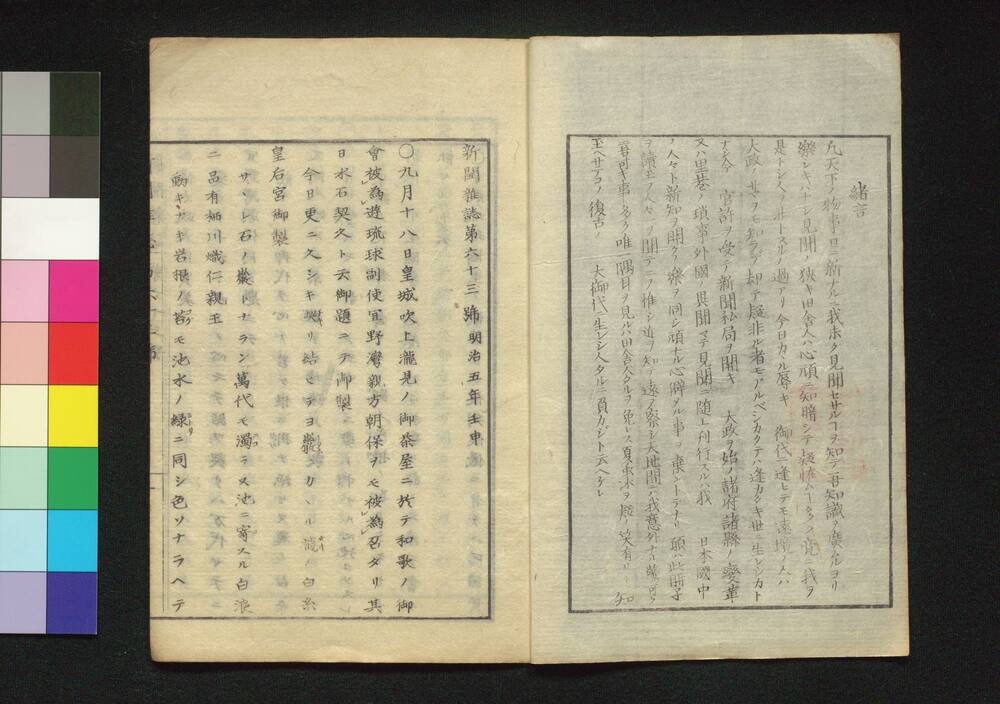 緒言
凡天下ノ物事日ニ新ナルニ我未タ見聞セサルヿヲ知テ吾知識ヲ廣ムルヨリ
樂シキハナシ見聞ノ狹キ田舎人ハ心頑ニ知暗シテ疑怪ノミ多ク竟ニ我ヲ
是トシ人ヲ非トスルノ過アリ今日カヽル尊キ 御代ニ逢ヒテモ遠境ノ人ハ
大政ノ サマヲモ知ラズ却テ疑非ル者モアルベシカクテハ逢カタキ世ニ生レシカヒト
ナシ今 官許ヲ受テ新聞私局ヲ開キ 大政ヲ始メ諸府諸縣ノ變革
又ハ里巷ノ瑣事外國ノ異聞マデ見聞ニ隨ヒ上刊行スルハ我 日本國中
ノ人々ト新知ヲ開クノ樂ヲ同シ頑ナル心僻メル事ヲ棄ントテナリ 願ハ此冊子
ヲ讀玉フ人々一ヲ聞テ二ヲ推シ近ヲ知テ遠ヲ察シ大地間ニハ我意外
喜可キ事ノ多ク唯一隅耳目ヲ見ルハ田舎人タルヲ免レス夏虫氷ヲ疑フ笑有リト 知
玉ヘサラハ 復古ノ 大御代ニ生レシ人タルニ負カジト云ヘケレ
新聞雜誌第六十三號 明治五年壬申
〇九月十八日皇城吹上瀧見ノ御茶屋ニ於テ和歌ノ御
會被為遊琉球副使宜野灣親方朝保ヲモ被為召タリ其
日水石契久ト云御題ニテ御製
今日更ニ久シキ契リ結ヒテヨ巖ニカヽル瀧ノ白糸
皇后宮御製
サヽレ石ノ巖トナラン萬代モ濁ラヌ池ニ寄スル白浪
二品有栖川熾仁親王
動キナキ岩根ノ苔モ池水ノ緑ニ同シ色ソナラヘテ